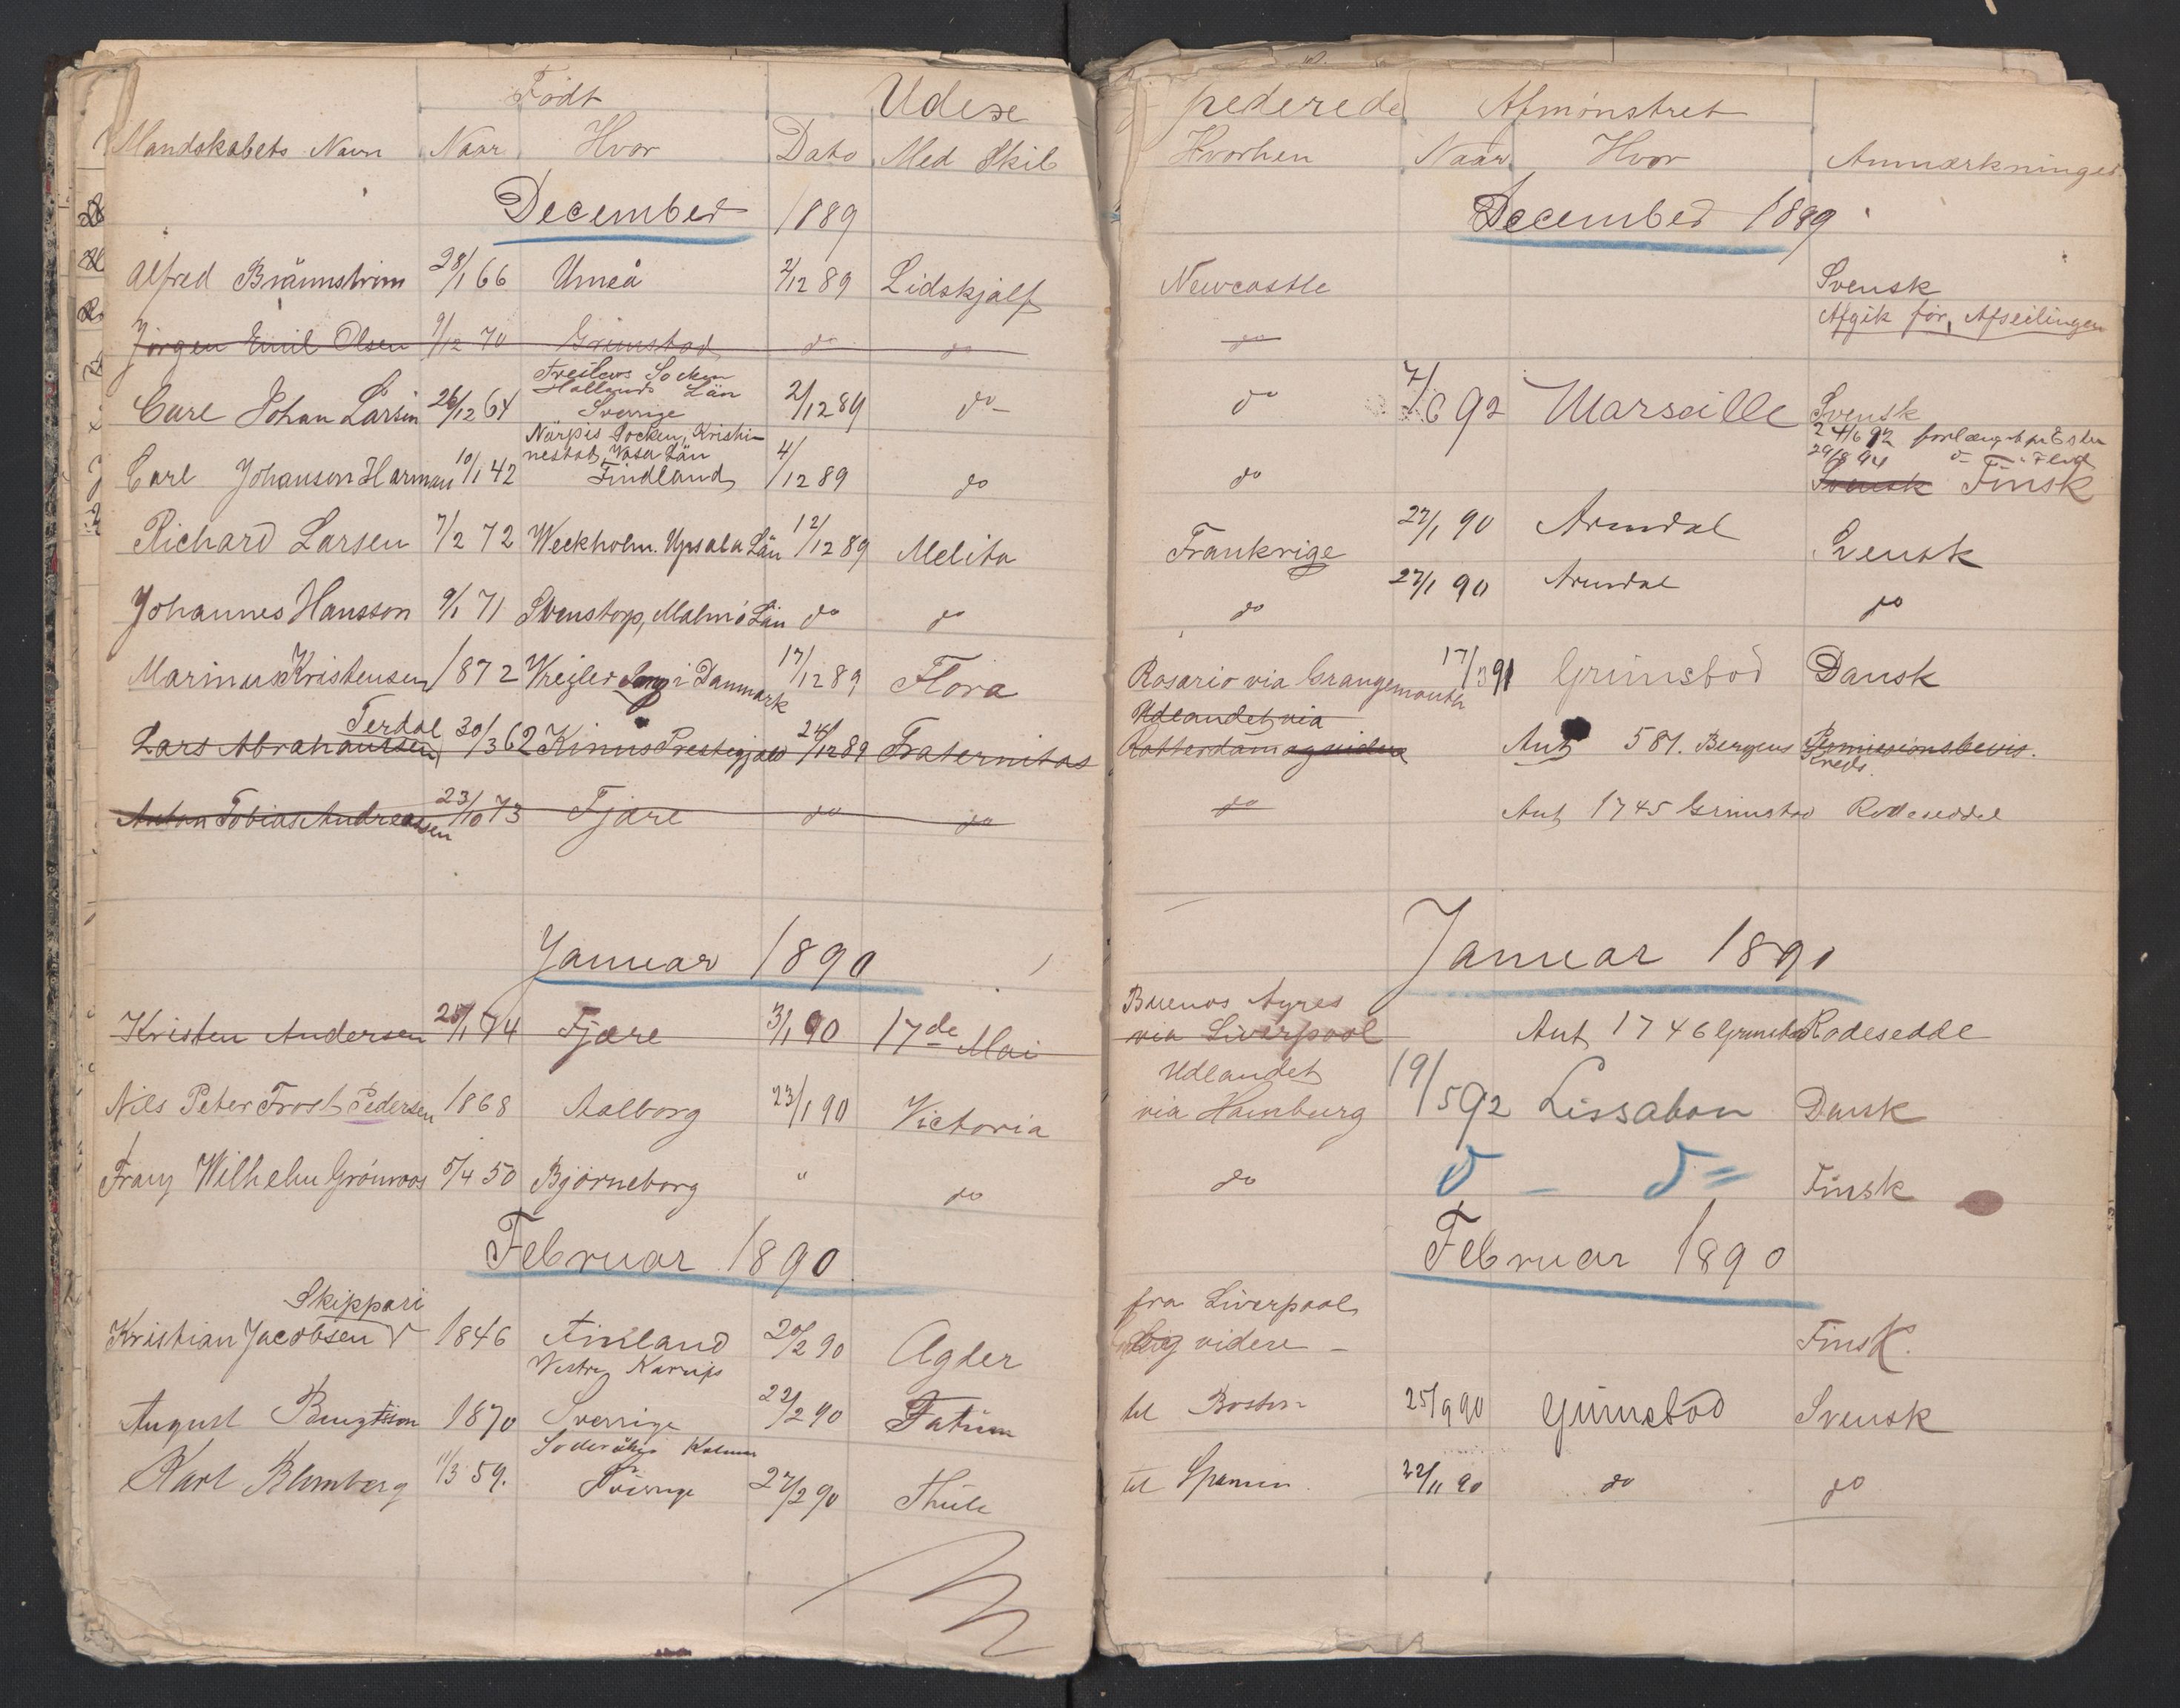 Født Udex
Mandskabets Navn Naar Hvor Dato Med Skib
December 1889
Alfred Brännström 28/1 66 Umeå 2/12 89 Lidskjalf
Jörgen Emil Olsen 9/12 70 Grimstad do do
Treslevs Socken
Hallands Län
Carl Johan Larsen 26/12 64 Sverrige 2/12 89 do
Närpis Socken, Kristi-
nestat, Vasa Län
Carl Johanson Harman 10/1 42 Findland 4/12 89 do
Richard Larsen 7/2 72 Weckholm. Upsala Län 12/12 89 Melita
Johannes Hansson 9/1 71 Svenstorp, Malmö Län do do
Marinus Kristensen 1872 Vreilev Sogn i Danmark 17/12 89 Flora
Terdal
Lars Abrahamsen 30/3 62 Kinns Prestegjæld 24/12 89 Fraternitas
Anton Tobias Andreassen 23/10 73 Fjære do do
Januar 1890
Kristen Andersen 28/1 74 Fjære 3/1 90 17de Mai
Nils Peter Frost Pedersen 1868 Aalborg 23/1 90 Victoria
Franz Wilhelm Grönroos 5/4 50 Björneborg " do
Februar 1890
Skippari
Kristian Jacobsen V 1846 Finland 20/2 90 Agder
Vestre Karrups
August Bengtsson 1870 Sverrige 22/2 90 Fatum
Söderåkra Kalmar
Karl Blomberg 11/3 59. Sverrige 27/2 90 Thule
pederede Afmønstret
Hvorhen Naar Hvor Anmærkninger
December 1889
Newcastle Svensk
Afgik før Afseilingen
do
do 7/6 92 Marseille Svensk
24/6 92 forlænget pr
29/8 94
do Svensk Finsk
Frankrige 27/1 90 Arendal Svensk
do 27/1 90 Arendal do
Rosario via Grangemouth 17/3 91 Grimstad Dansk
Udlandet via
Rotterdam og videre Ant 581. Bergens Kreds. Remissionsbevis.
do Ant 1745 Grimstad Rodeseddel
Januar 1890
Buenos Ayres
via Liverpool Ant 1746 Grimstad Rodesedde
Udlandet
via Hamburg 19/5 92 Lissabon Dansk
do d - d = Finsk
Februar 1890
fra Liverpool
og videre - Finsk.
til Boston 25/9 90 Grimstad Svensk
til Spanien 22/11 90 do do